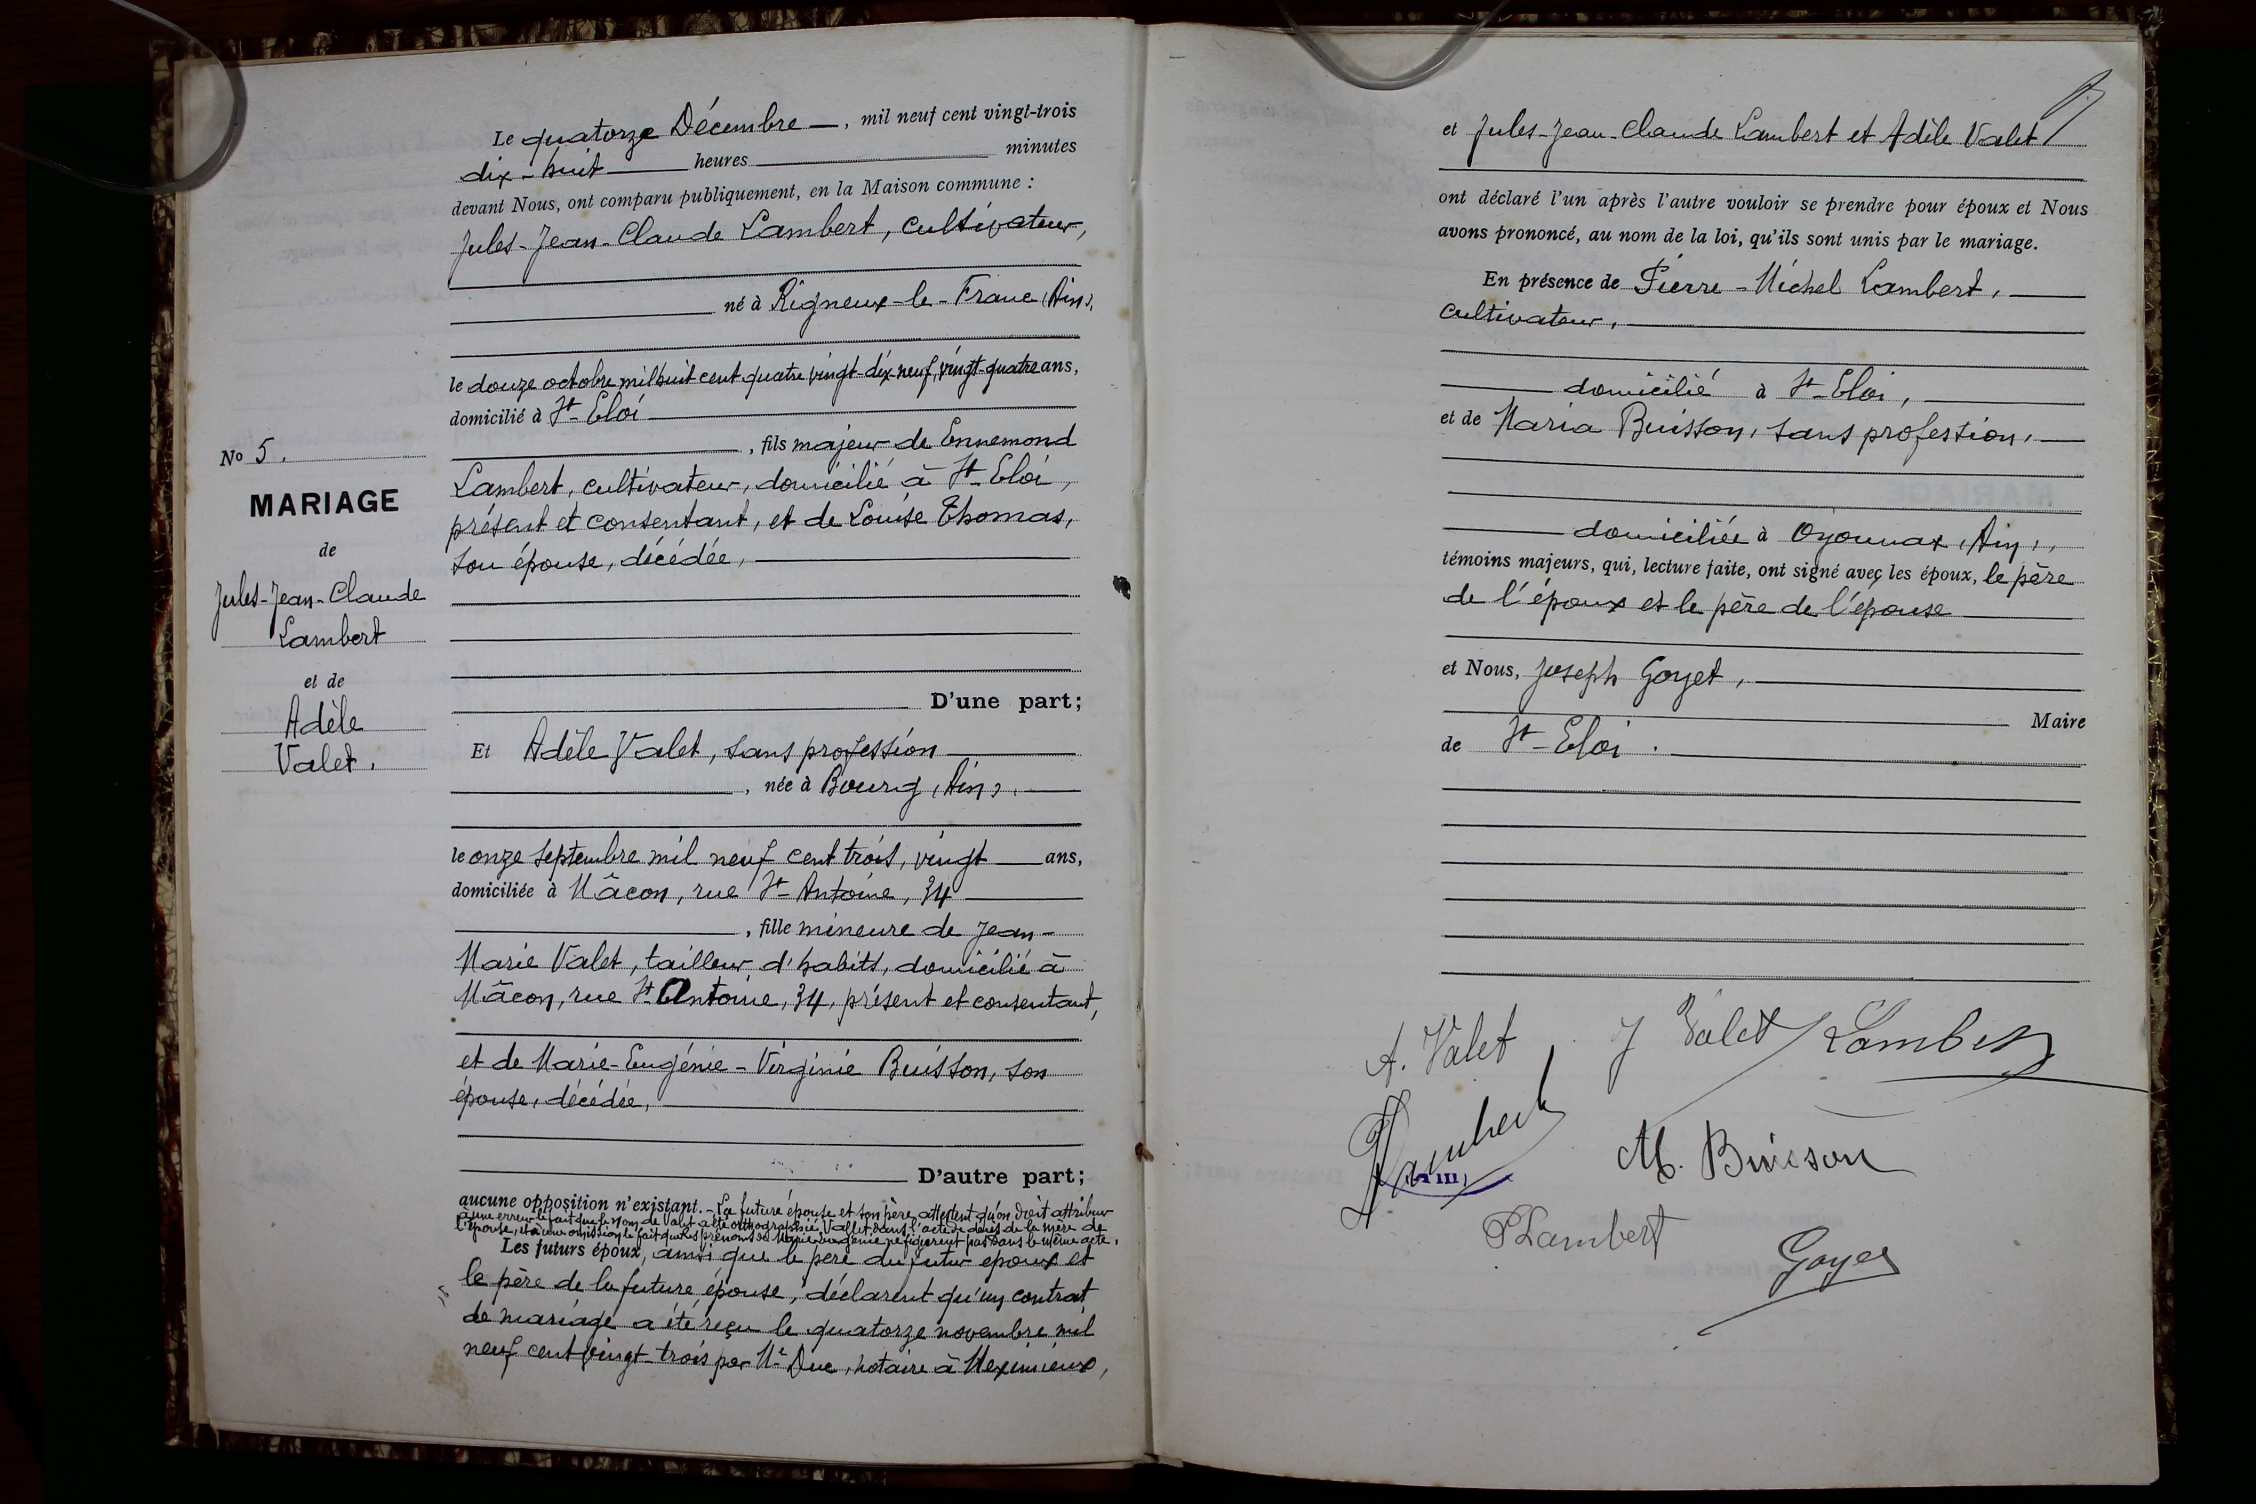 Le quatorze Décembre —, mil neuf cent vingt-trois
dix-huit heures minutes
devant Nous, ont comparu publiquement, en la Maison commune :
Jules-Jean-Claude Lambert, cultivateur,
né à Rigneux-le-Franc (Ain),
le douze octobre mil huit cent quatre vingt-dix-neuf, vingt-quatre ans,
domicilié à St-Eloi
, fils majeur de Ennemond
Lambert, cultivateur, domicilié à St-Eloi,
présent et consentant, et de Louise Thomas,
son épouse, décédée,
D'une part;
No 5.
MARIAGE
de
Jules-Jean-Claude
Lambert
et de
Adèle
Valet.
Et Adèle Valet, sans profession
, née à Bourg (Ain),
le onze septembre mil neuf cent trois, vingt ans,
domiciliée à Mâcon, rue St-Antoine, 34
, fille mineure de Jean-
Marie Valet, tailleur d'habits, domicilié à
Mâcon, rue St Antoine, 34, présent et consentant,
et de Marie-Eugénie-Virginie Buisson, son
épouse, décédée,
D'autre part;
aucune opposition n'existant. - La future épouse et son père attestent qu'on doit attribuer
à une erreur le fait que le nom de Valet a été orthographié Vallet dans l'acte de décès de la mère de
l'épouse, et à une omission le fait que les prénoms de Marie-Eugénie ne figurent pas dans le même acte.
Les futurs époux, ainsi que le père du futur époux et
le père de la future épouse, déclarent qu'un contrat
de mariage a été reçu le quatorze novembre mil
neuf cent vingt-trois par Me Duc, notaire à Meximieux,
et Jules-Jean-Claude Lambert et Adèle Valet
ont déclaré l'un après l'autre vouloir se prendre pour époux et Nous
avons prononcé, au nom de la loi, qu'ils sont unis par le mariage.
En présence de Pierre-Michel Lambert,
cultivateur,
domicilié à St-Eloi,
et de Maria Buisson, sans profession,
domiciliée à Oyonnax (Ain),
témoins majeurs, qui, lecture faite, ont signé avec les époux, le père
de l'époux et le père de l'épouse
et Nous, Joseph Goyet,
Maire
de St-Eloi.
A. Valet J Valet Lambert
Lambert
M. Buisson
P Lambert
Goyet